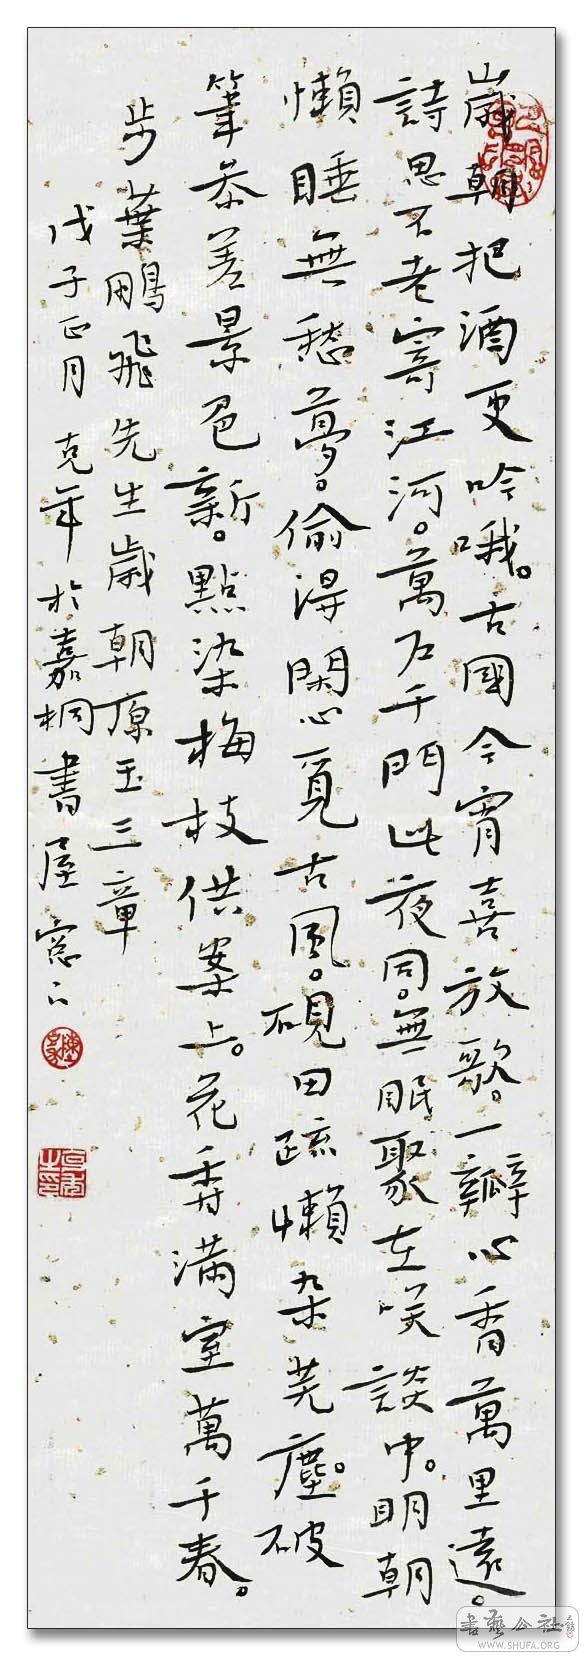 歲朝把酒更吟哦。古國今宵喜放歌。一瓣心香萬里遠。
詩思不老寄江河。萬户千門此夜同。無眠聚在咲談中。明朝
懶睡無愁夢。偷得閑心覓古風。硯田疏懶杂芜塵。破
筆参差景色新。點染梅枝供案上。花香滿室萬千春。
步葉鵬飛先生歲朝原玉三章
戊子正月 克年於嘉桐書屋窓下
書藝公社
WWW.SHUFA.ORG